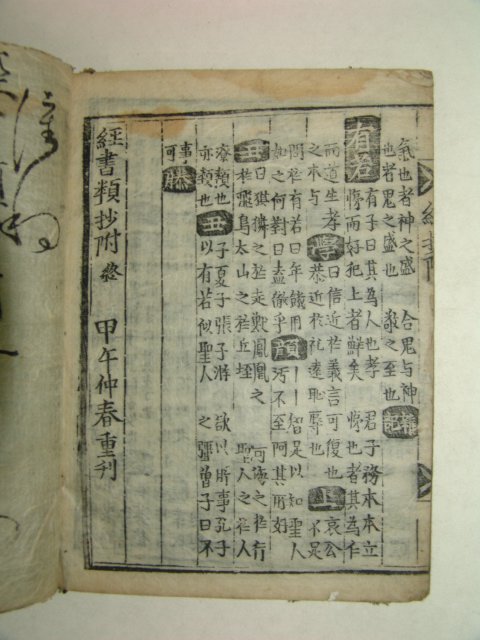 氣也者神之盛 合鬼与神
也者鬼之盛也 教之至也
有若 有子曰其為人也孝 君子務本本立
悌而好犯上者鮮矣 悌也者其為仁
而道生孝 學 曰信近於義言可復也 上 哀公
之本与 恭近於礼遠耻辱也 不足
問於有若曰年饑用 顏 丨丨智足以知聖人
如之何對曰盍徹乎 汚不至阿其所好
丑 曰猉獜之於走獸鳳凰之 河海之於行
於飛鳥太山之於丘垤 聖人之於人
潦類也 丑 子夏子張子游 欲以所事孔子
亦類也 以有若似聖人 之彊曾子曰不
事
可 滕
經書類抄附 終 甲午仲春重刊